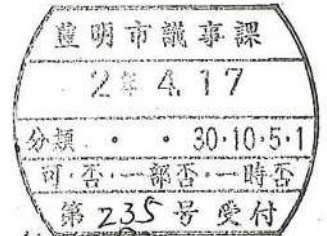 豊明市議事課
2年4.17
分類 ・ ・ 30・10・5・1
可・否・一部否・一時否
第235号受付